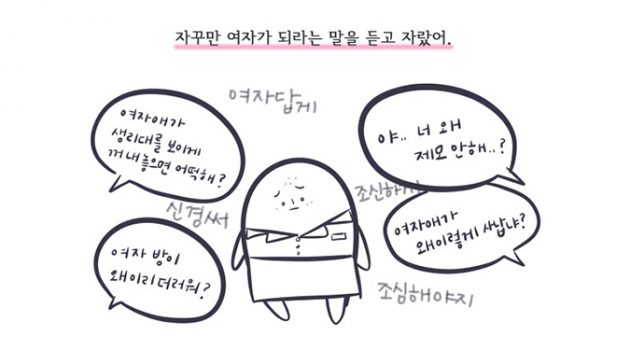 자꾸만 여자가 되라는 말을 듣고 자랐어.
여자답게
여자애가
생리대를 보이게
꺼내놓으면 어떡해?
야.. 너 왜
제모 안해..?
신경써
조신하게
여자애가
왜이렇게 사납냐?
여자 방이
왜이리 더러워?
조심해야지